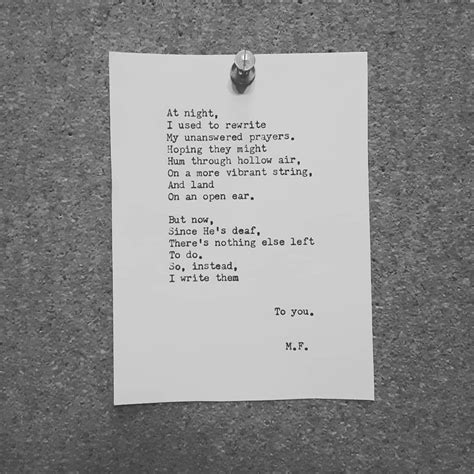 At night,
I used to rewrite
My unanswered prayers.
Hoping they might
Hum through hollow air,
On a more vibrant string,
And land
On an open ear.
But now,
Since He's deaf,
There's nothing else left
To do.
So, instead,
I write them
To you.
M.F.